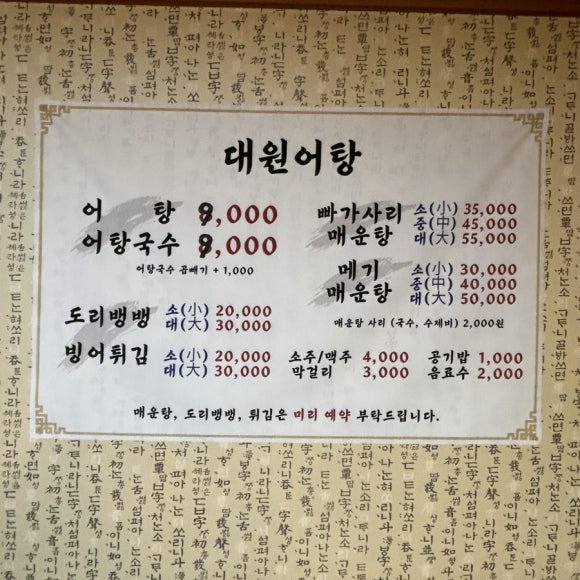 대원어탕
어 탕 9,000
어탕국수 9,000
어탕국수 곱빼기 + 1,000
도리뱅뱅 소(小) 20,000
대(大) 30,000
빙어튀김 소(小) 20,000
대(大) 30,000
빠가사리 매운탕 소(小) 35,000
중(中) 45,000
대(大) 55,000
메기 매운탕 소(小) 30,000
중(中) 40,000
대(大) 50,000
매운탕 사리 (국수, 수제비) 2,000원
소주/맥주 4,000 공기밥 1,000
막걸리 3,000 음료수 2,000
매운탕, 도리뱅뱅, 튀김은 미리 예약 부탁드립니다.